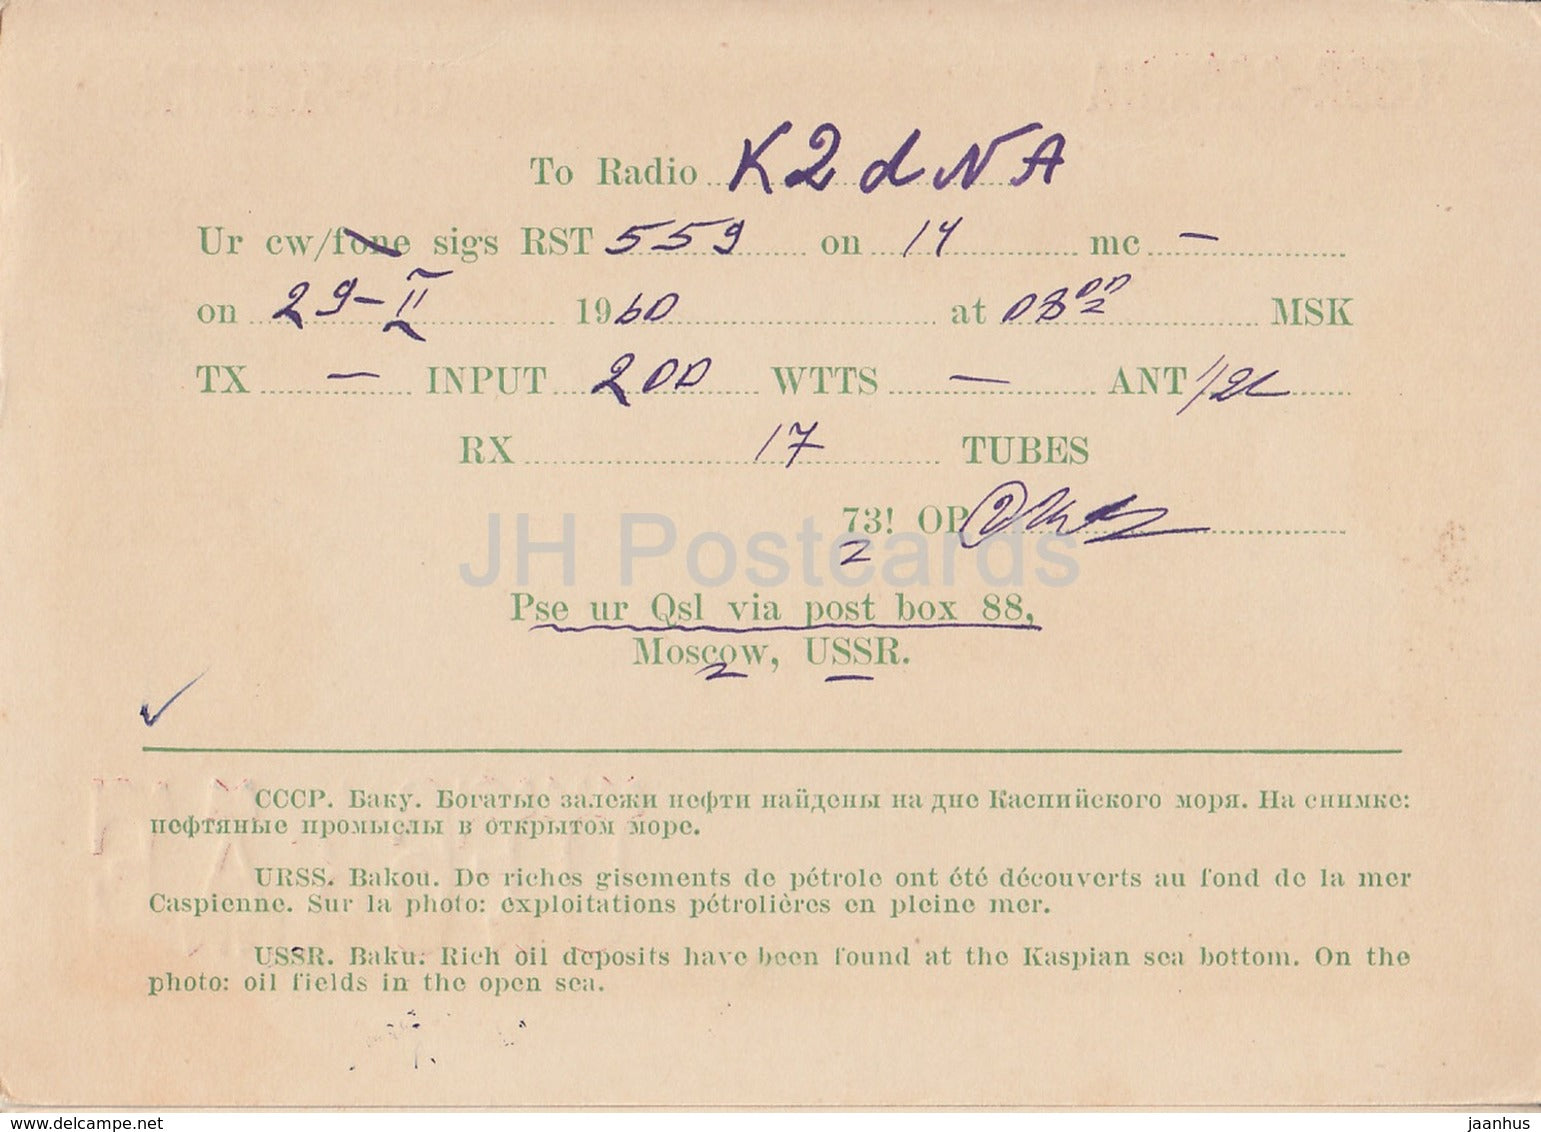 To Radio K2dNA
Ur cw/fone sigs RST 559 on 14 mc –
on 29-II 1960 at 08 00 MSK
TX – INPUT 200 WTTS – ANT
RX 17 TUBES
73! OP
JH Postcards
Pse ur Qsl via post box 88,
Moscow, USSR.
СССР. Баку. Богатые залежи нефти найдены на дне Каспийского моря. На снимке:
нефтяные промыслы в открытом море.
URSS. Bakou. De riches gisements de pétrole ont été découverts au fond de la mer
Caspienne. Sur la photo: exploitations pétrolières en pleine mer.
USSR. Baku. Rich oil deposits have been found at the Kaspian sea bottom. On the
photo: oil fields in the open sea.
www.delcampe.net
jaanhus